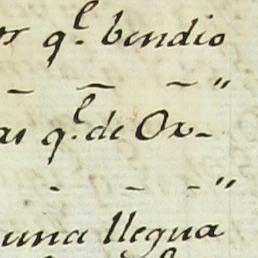 os q.l bendio
- - - "
as q.l de Ox-
- - - "
una llegua